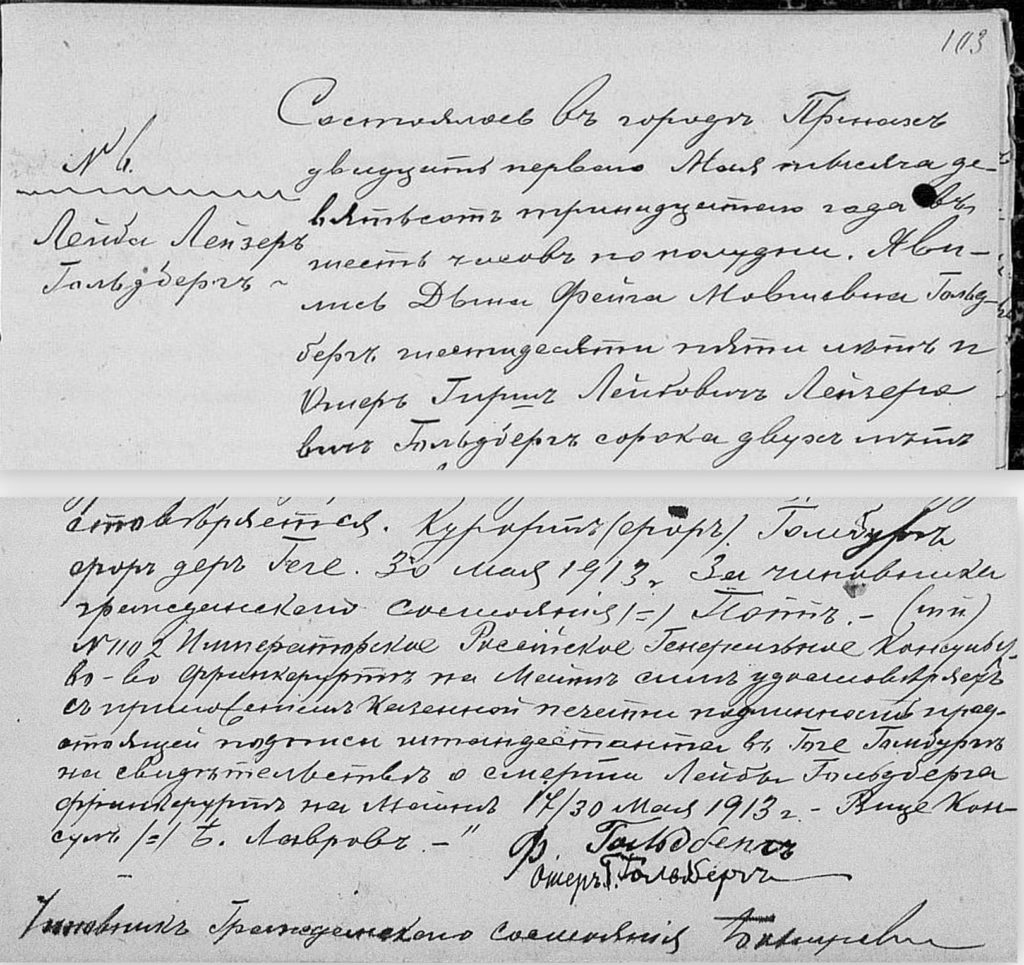 103
№ 6.
Лейба Лейзеръ
Гольдбергъ
Состоялось въ городѣ Пренахъ
двадцать перваго Мая тысяча де-
вятьсотъ тринадцатаго года въ
шесть часовъ пополудни. Яви-
лись Дына Фейга Мовшовна Гольд-
бергъ шестидесяти пяти лѣтъ и
Ошеръ Гиршъ Лейбовичъ Лейзеро
вичъ Гольдбергъ сорока двухъ лѣтъ
стовѣряется. Курортъ (форъ). Гомбургъ
форъ деръ Геге. 30 Мая 1913 г. За чиновника
гражданскаго состоянія /=/ Поттъ. - (мп)
№ 1102 Императорское Россійское Генеральное Консульст-
во - во Франкфуртѣ на Майнѣ симъ удостовѣряетъ
съ приложеніемъ казенной печати подлинность пред-
стоящей подписи штандесамта въ Геге Гомбургъ
на свидѣтельствѣ о смерти Лейбы Гольдберга
Франкфуртъ на Майнѣ 17/30 Мая 1913 г. - Вице Кон-
сулъ /=/ Лавровъ. - "
Ф. Гольдбергъ
Ошеръ Г. Гольдбергъ
Чиновникъ Гражданскаго состоянія